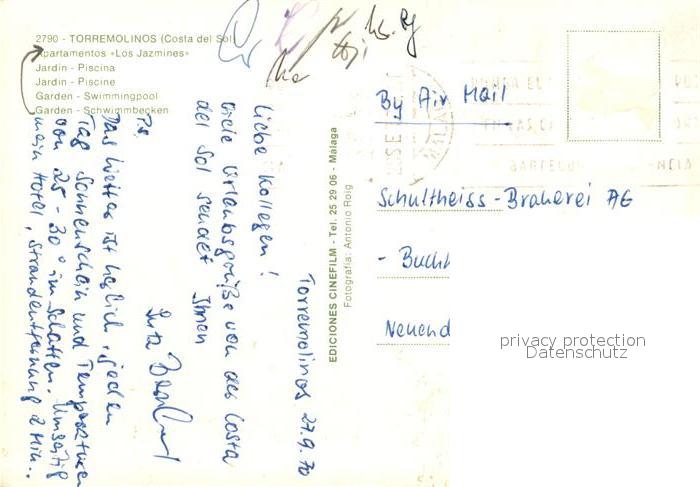 2790 - TORREMOLINOS (Costa del Sol)
Apartamentos «Los Jazmines»
Jardín - Piscina
Jardin - Piscine
Garden - Swimmingpool
Garden - Schwimmbecken
Torremolinos 27.9.70
Liebe Kollegen!
viele Urlaubsgrüße von der Costa
del Sol sendet Ihnen
P.S.
Das Wetter ist herrlich, jeden
Tag Sonnenschein und Temperaturen
von 25-30° im Schatten. Umseitig
mein Hotel, Strandentfernung 2 Min..
EDICIONES CINEFILM - Tel. 25 29 06 - Málaga
Fotografía: Antonio Roig
By Air Mail
Schultheiss-Brauerei AG
- Buchh
Neuend
privacy protection
Datenschutz